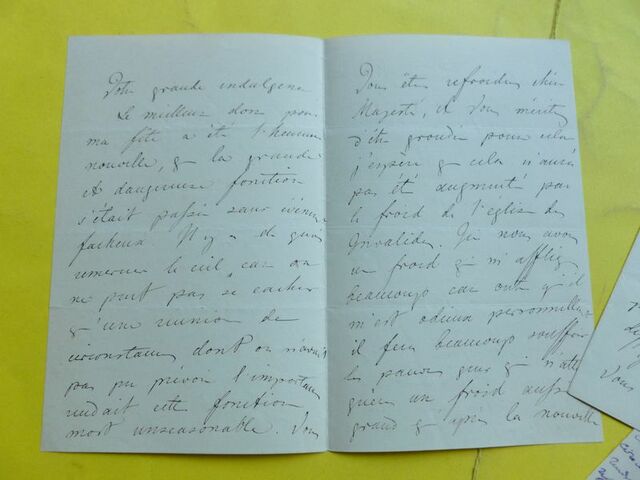 Votre grande indulgence
Le meilleur don pour
ma fête a été l'heureuse
nouvelle, q la grande
et dangereuse fonction
s'était passée sans évènem
facheux. Il y a de quoi
remercier le ciel, car on
ne peut pas se cacher
q'une réunion de
circonstances dont on n'avait
pas pu prévoir l'importance
rendait cette fonction
most unseasonable. Vous
Vous êtes refroidie chère
Majesté, et Vous méritez
d'être grondée pour cela
j'espère q cela n'aura
pas été augmenté par
le froid de l'église des
Invalides. Ici nous avons
un froid qi m'afflige
beaucoup car outre q'il
m'est odieux personnellem
il fera beaucoup souffrir
les pauvres gens qi n'atten
guère un froid aussi
grand q'après la nouvelle
Vous